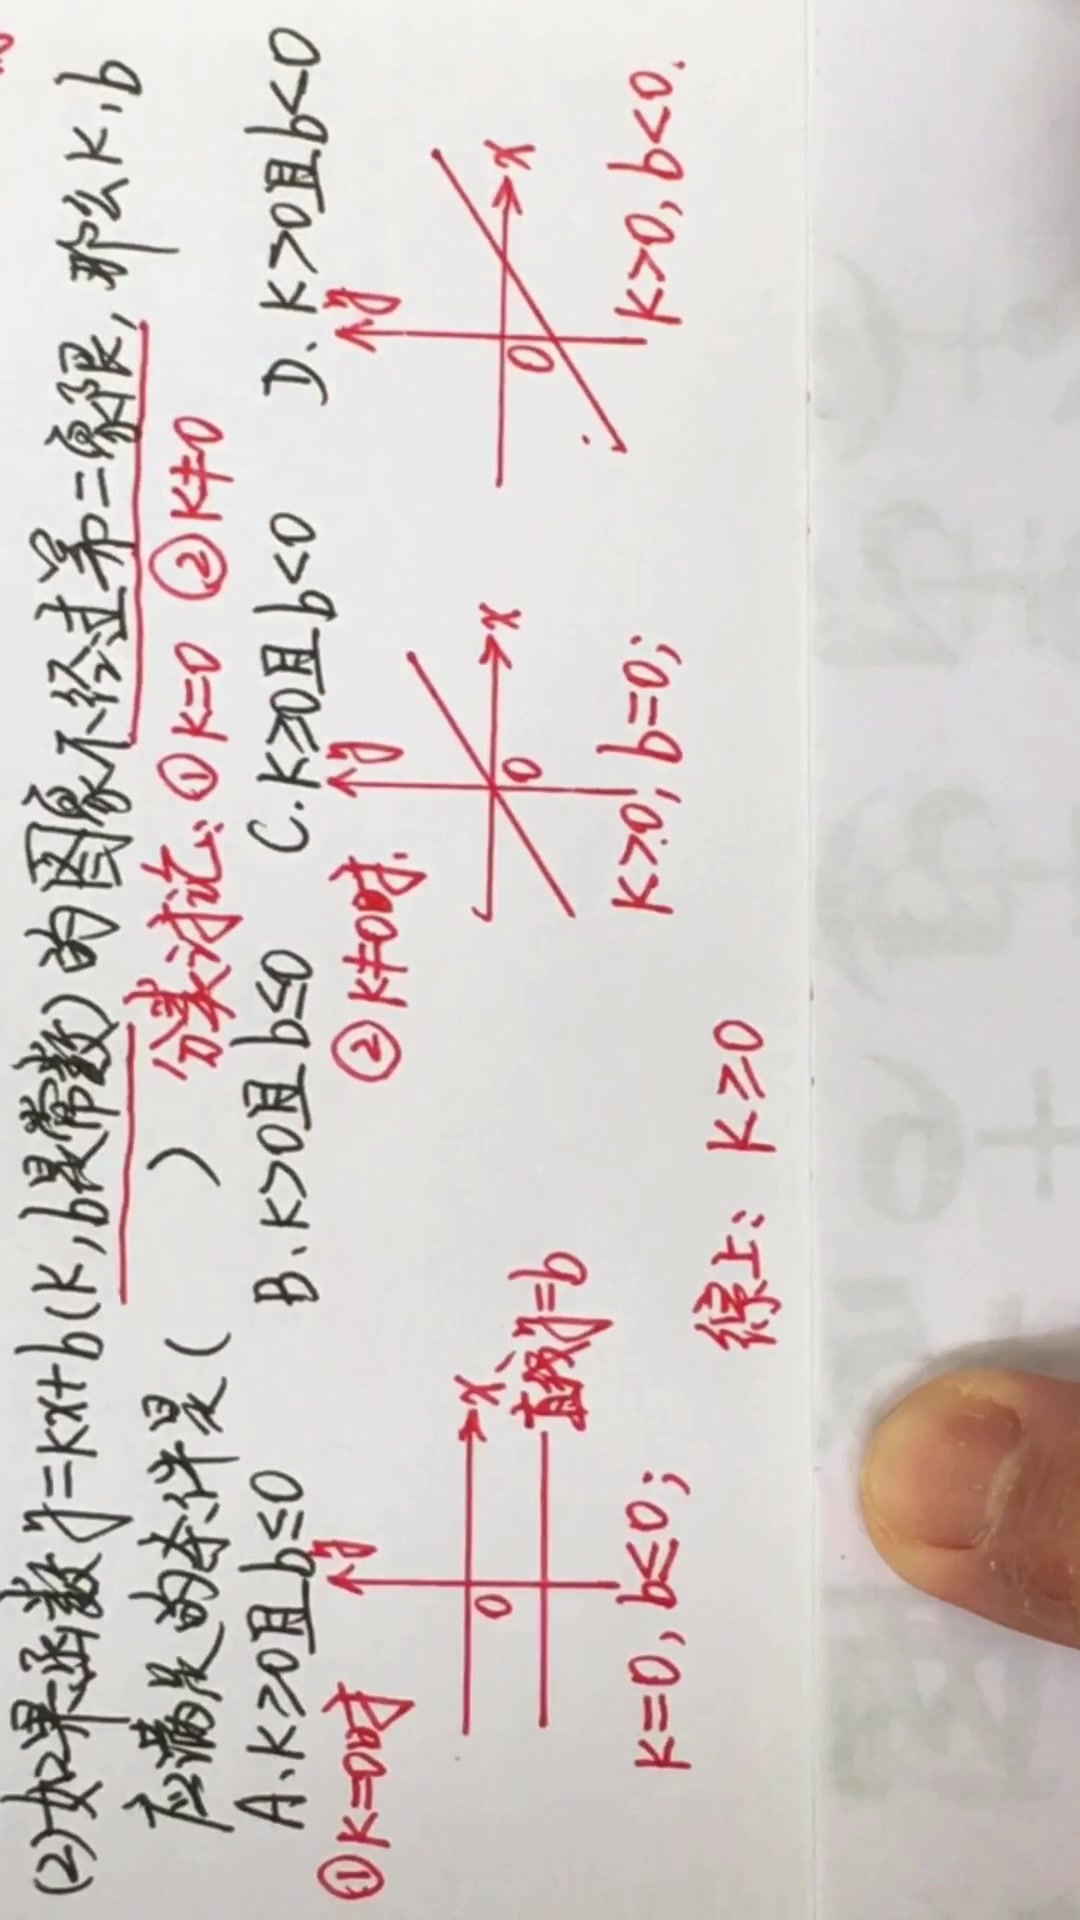 (2)如果函数y=kx+b(k,b是常数)的图象不经过第二象限,那么k,b
应满足的条件是( )
分类讨论:①k=0 ②k≠0
A、k≥0且b≤0 B、k>0且b≤0 C.k≥0且b<0 D、k>0且b<0
①k=0时 ②k≠0时.
y x 0 直线y=b
y x 0
y x 0
k=0,b≤0; k>0,b=0; k>0,b<0.
综上:k≥0